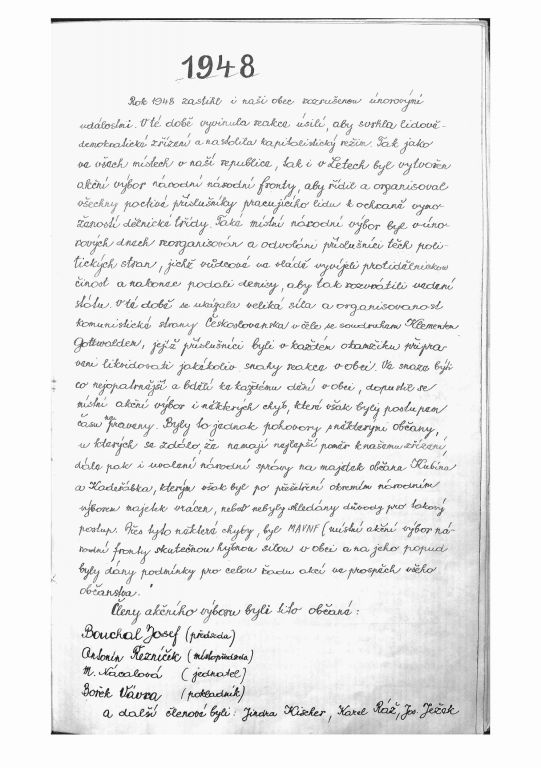 1948
Rok 1948 zastihl i naši obec rozrušenou únorovými
událostmi. V té době vyvinula reakce úsilí, aby svrhla lidově-
demokratické zřízení a nastolila kapitalistický režim. Tak jako
ve všech místech v naší republice, tak i v Letech byl vytvořen
akční výbor národní národní fronty, aby řídil a organisoval
všechny poctivé příslušníky pracujícího lidu k ochraně vymo-
žeností dělnické třídy. Také místní národní výbor byl v úno-
rových dnech reorganisován a odvoláni příslušníci těch poli-
tických stran, jichž vůdcové ve vládě vyvíjeli protidělnickou
činost a nakonec podali demisy, aby tak rozvrátili vedení
státu. V té době se ukázala veliká síla a organisovanost
komunistické strany Československa v čele se soudruhem Klementem
Gottwaldem, jejíž příslušníci byli v každém okamžiku připra-
veni likvidovati jakékoliv snahy reakce v obci. Ve snaze býti
co nejopatrnější a bdělí ke každému dění v obci, dopustil se
místní akční výbor i některých chyb, které však byly postupem
času napraveny. Byly to jednak pohovory s některými občany,
u kterých se zdálo, že nemají nejlepší poměr k našemu zřízení,
dále pak i uvalení národní správy na majetek občana Kubína
a Kadeřábka, kterým však byl po přešetření okresním národním
výborem majetek vrácen, neboť nebyly shledány důvody pro takový
postup. Přes tyto některé chyby, byl MAVNF (místní akční výbor ná-
rodní fronty skutečnou hybnou silou v obci a na jeho popud
byly dány podmínky pro celou řadu akcí ve prospěch všeho
občanstva.
Členy akčního výboru byli tito občané:
Bouchal Josef (předseda)
Antonín Řezníček (místopředseda)
M. Nácalová (jednatel)
Bořek Vávra (pokladník)
a další členové byli: Jindra Hischer, Karel Ráž, Jos. Ježek